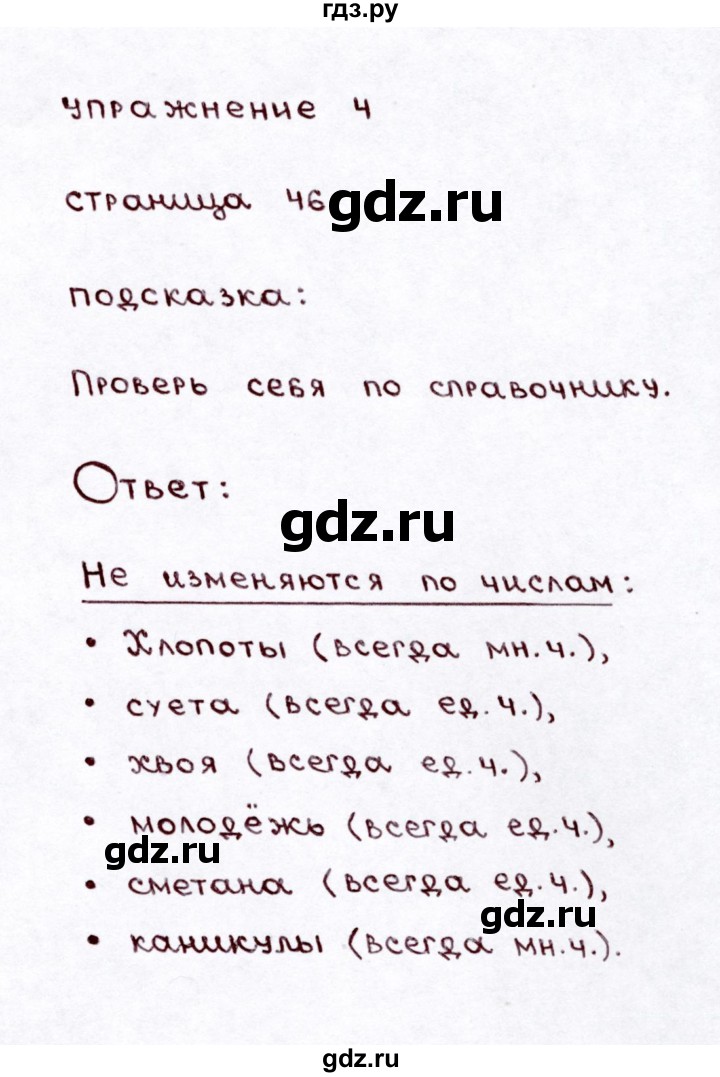 гдз.ру
упражнение 4
страница 46
gdz.ru
подсказка:
Проверь себя по справочнику.
Ответ:
gdz.ru
Не изменяются по числам:
• Хлопоты (всегда мн.ч.),
• суета (всегда ед.ч.),
• хвоя (всегда ед.ч.),
• молодёжь (всегда ед.ч.),
gdz.ru
• сметана (всегда ед.ч.),
gdz.ru
• каникулы (всегда мн.ч.).
gdz.ru